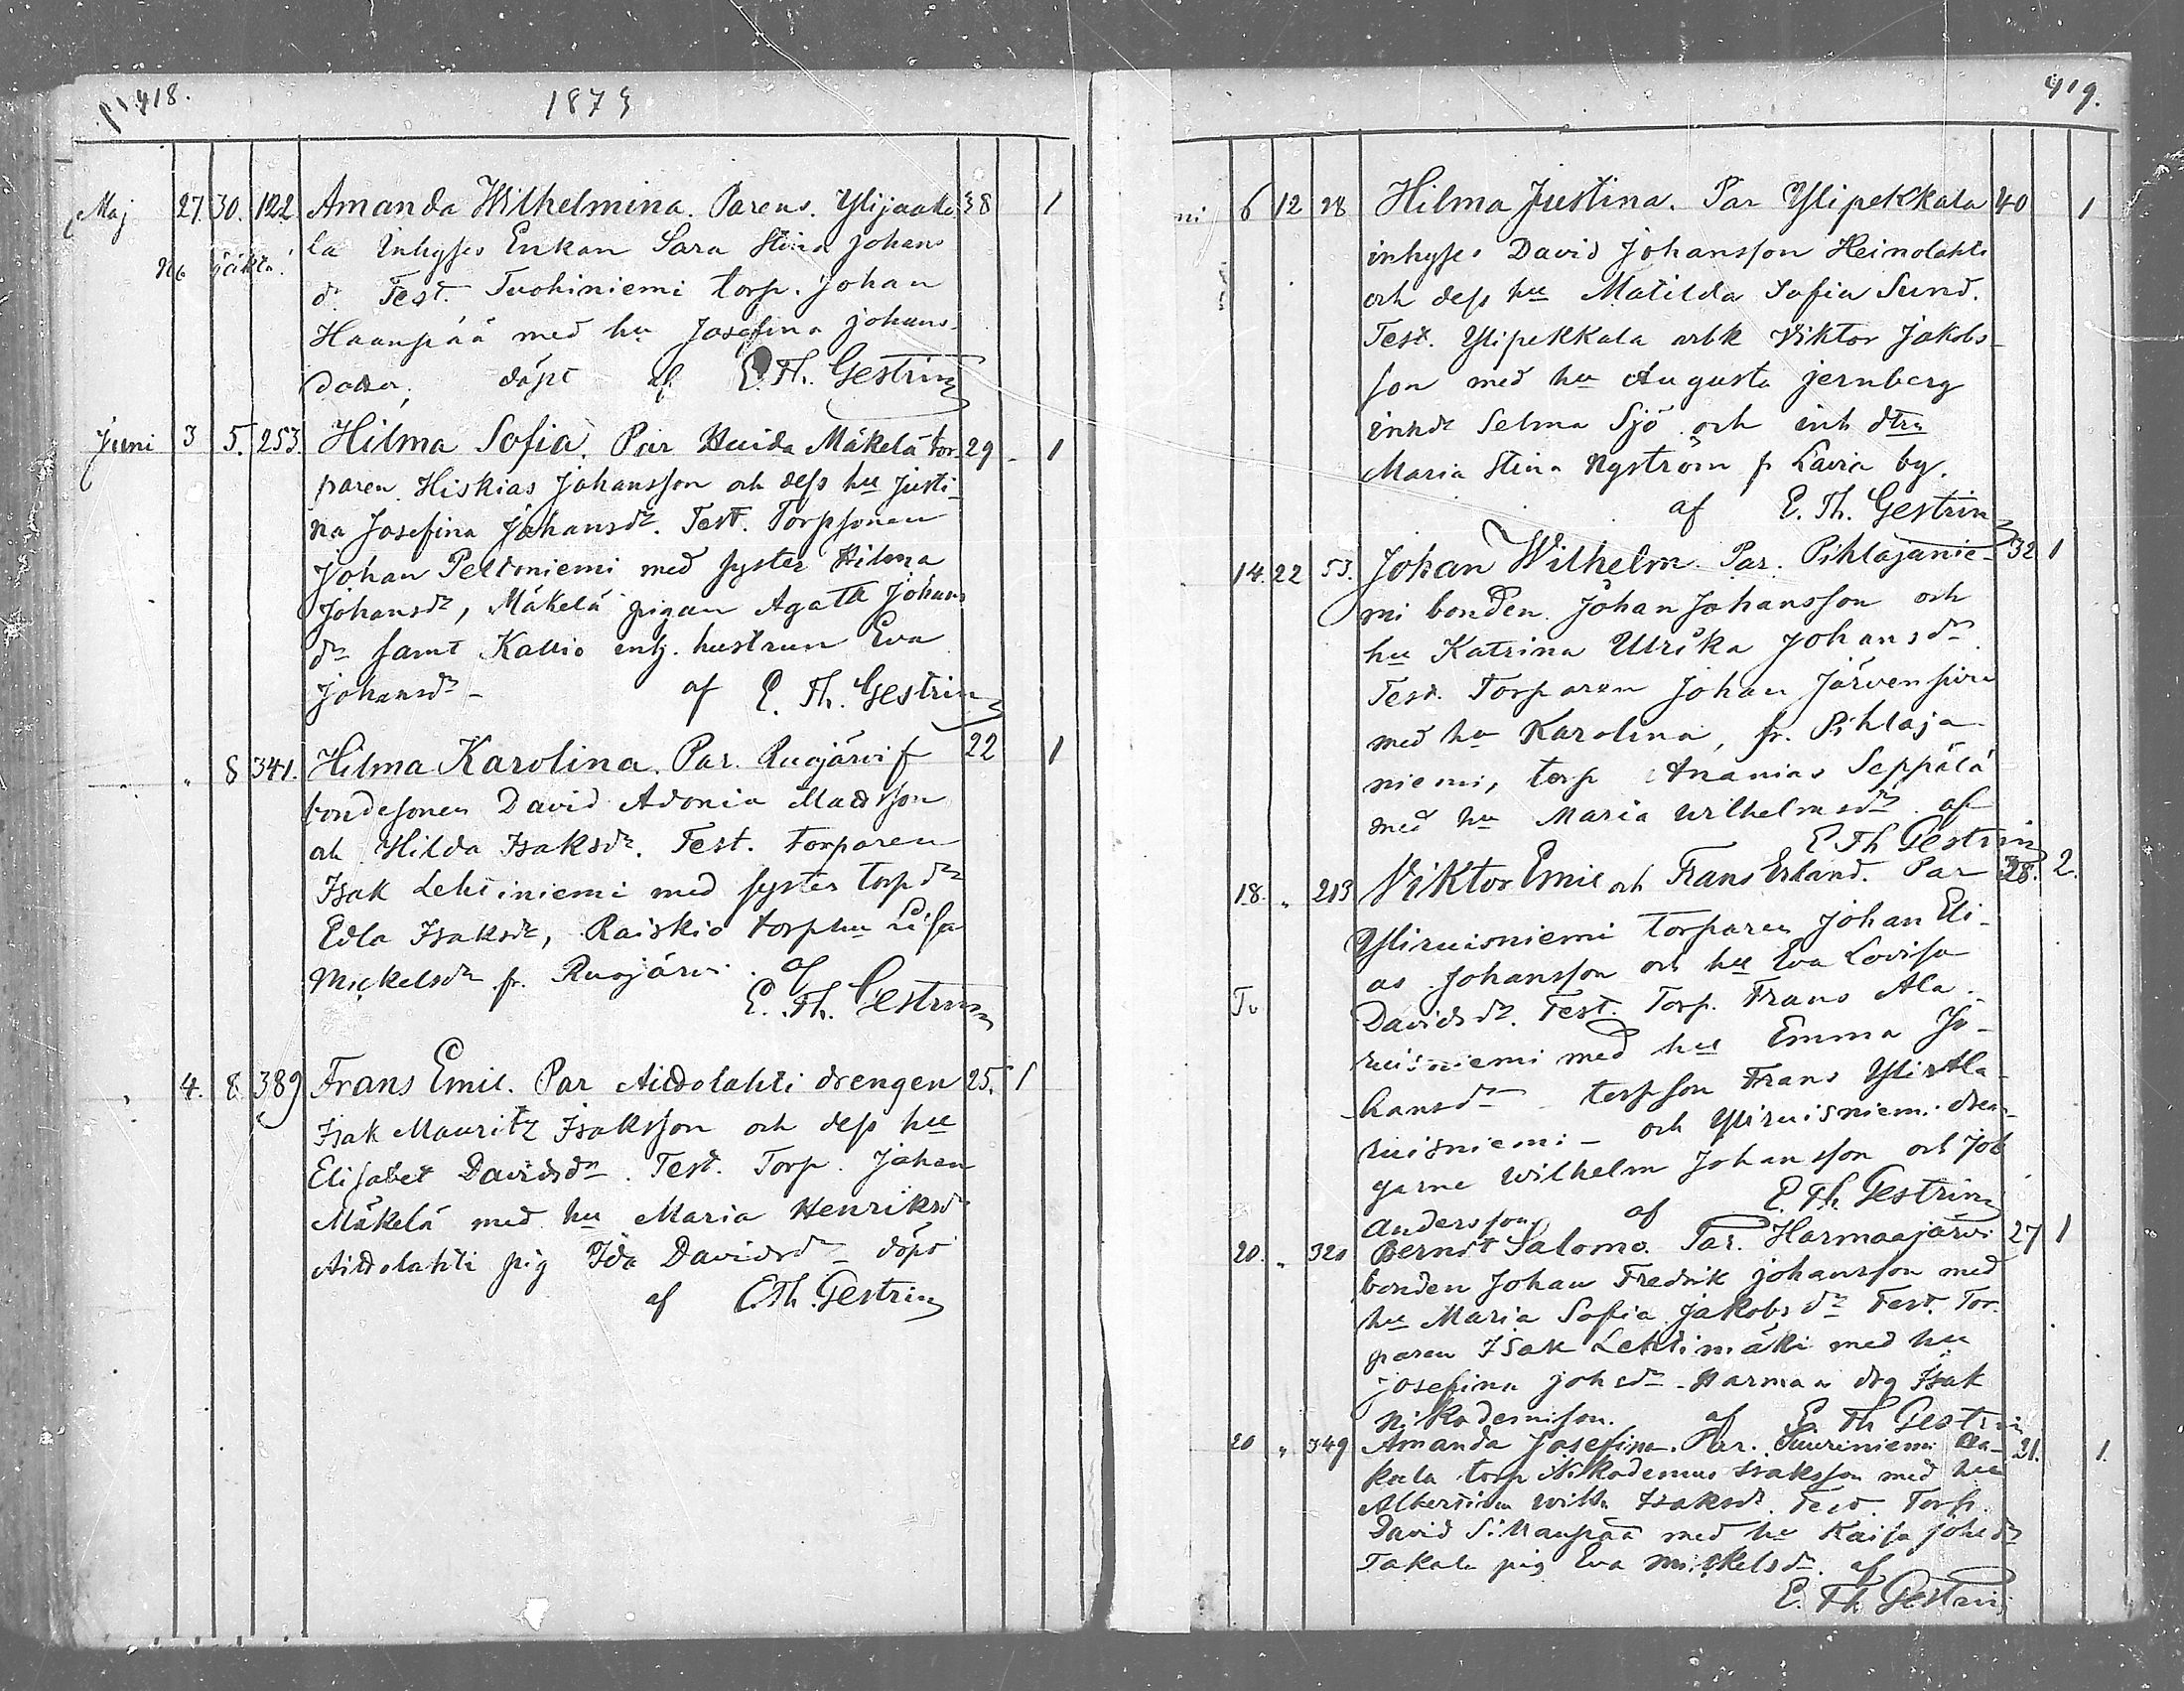 418.
1879
Maj 27. 30. 122 Amanda Wilhelmina. Parens. Ylijaako 38 1
la Inhyses Enkan Sara Stina Johans
Oäkta.
dr. Test. Tuohiniemi torp. Johan
Haanpää med hu Josefina Johans
dotter, döpt af E. Th. Gestrin
Juni 3 5. 253. Hilma Sofia. Par Huida Mäkelä tor 29 1
paren Hiskias Johansson och dess hu Justi
na Josefina Johansdr. Test. Torpsonen
Johan Peltoniemi med syster Hilma
Johansdr, Mäkelä pigan Agata Johans
dr samt Kallio inh. hustrun Eva
Johansdr - af E. Th. Gestrin
" 8 341. Hilma Karolina. Par. Ruojärvi f 22 1
bondesonen David Adonia Mattsson
och Hilda Isaksdr. Test. torparen
Isak Lehtiniemi med syster torpdr
Edla Isaksdr, Raiskio torphu Lisa
Mickelsdr fr. Ruojärvi. af
E. Th. Gestrin
" 4. 8. 389 Frans Emil. Par Aittolahti drengen 25. 1
Isak Mauritz Isaksson och dess hu
Elisabet Davidsdr. Test. Torp. Johan
Mäkelä med hu Maria Henriksdr
Aittolahti pig Ida Davidsdr döpt
af E. Th. Gestrin
419.
ni 6 12 28 Hilma Justina. Par Ylipekkala 40 1
inhyses David Johansson Heinolahti
och dess hu Matilda Sofia Sund.
Test. Ylipekkala arbk Viktor Jakobs
son med hu Augusta Jernberg
inhdr Selma Sjö och inh dtrn
Maria Stina Nyström fr Lavia by.
af E. Th. Gestrin
14. 22 53. Johan Wilhelm. Par. Pihlajanie- 32 1
mi bonden Johan Johansson och
hu Katrina Ulrika Johansdr
Test. Torparen Johan Järvenpää
med hu Karolina, fr. Pihlaja
niemi, torp Ananias Seppälä
med hu Maria Wilhelmsdr. af
E. Th Gestrin
18. " 213 Viktor Emil och Frans Erland. Par 28. 2.
Yliruisniemi torparen Johan Eli-
as Johansson och hu Eva Lovisa
Tv Davidsdr. Test. Torp. Frans Ala-
ruisniemi med hu Emma Jo-
hansdr torpson Frans Ala-
ruisniemi - och Yliruisniemi dren-
garne Wilhelm Johansson och Job
Andersson af E. Th Gestrin
20. " 320 Berndt Salomo. Par. Harmaajärvi 27 1
bonden Johan Fredrik Johansson med
hu Maria Sofia Jakobsdr Test. Tor-
paren Isak Lehtimäki med hu
Josefina Johsdr - Harmaa drg Isak
Nikodemison. af E. Th Gestrin
20 " 349 Amanda Josefina. Par. Suuriniemi 21. 1.
torp Nikodemus Isaksson med hu
Albertina Wilh. Isaksdr. Test. Torp.
David Sillanpää med hu Kaisa Johsdr
Takala pig Eva Mickelsdr. af
E. Th Gestrin